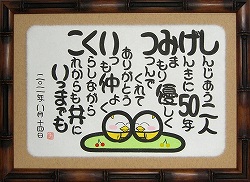 しんじあう二人
げんきに50年
みまもり優しく
つつんでくれて
ありがとう
いつも仲よく
くらしながら
これからも共に
いつまでも
二〇二一年八月十四日